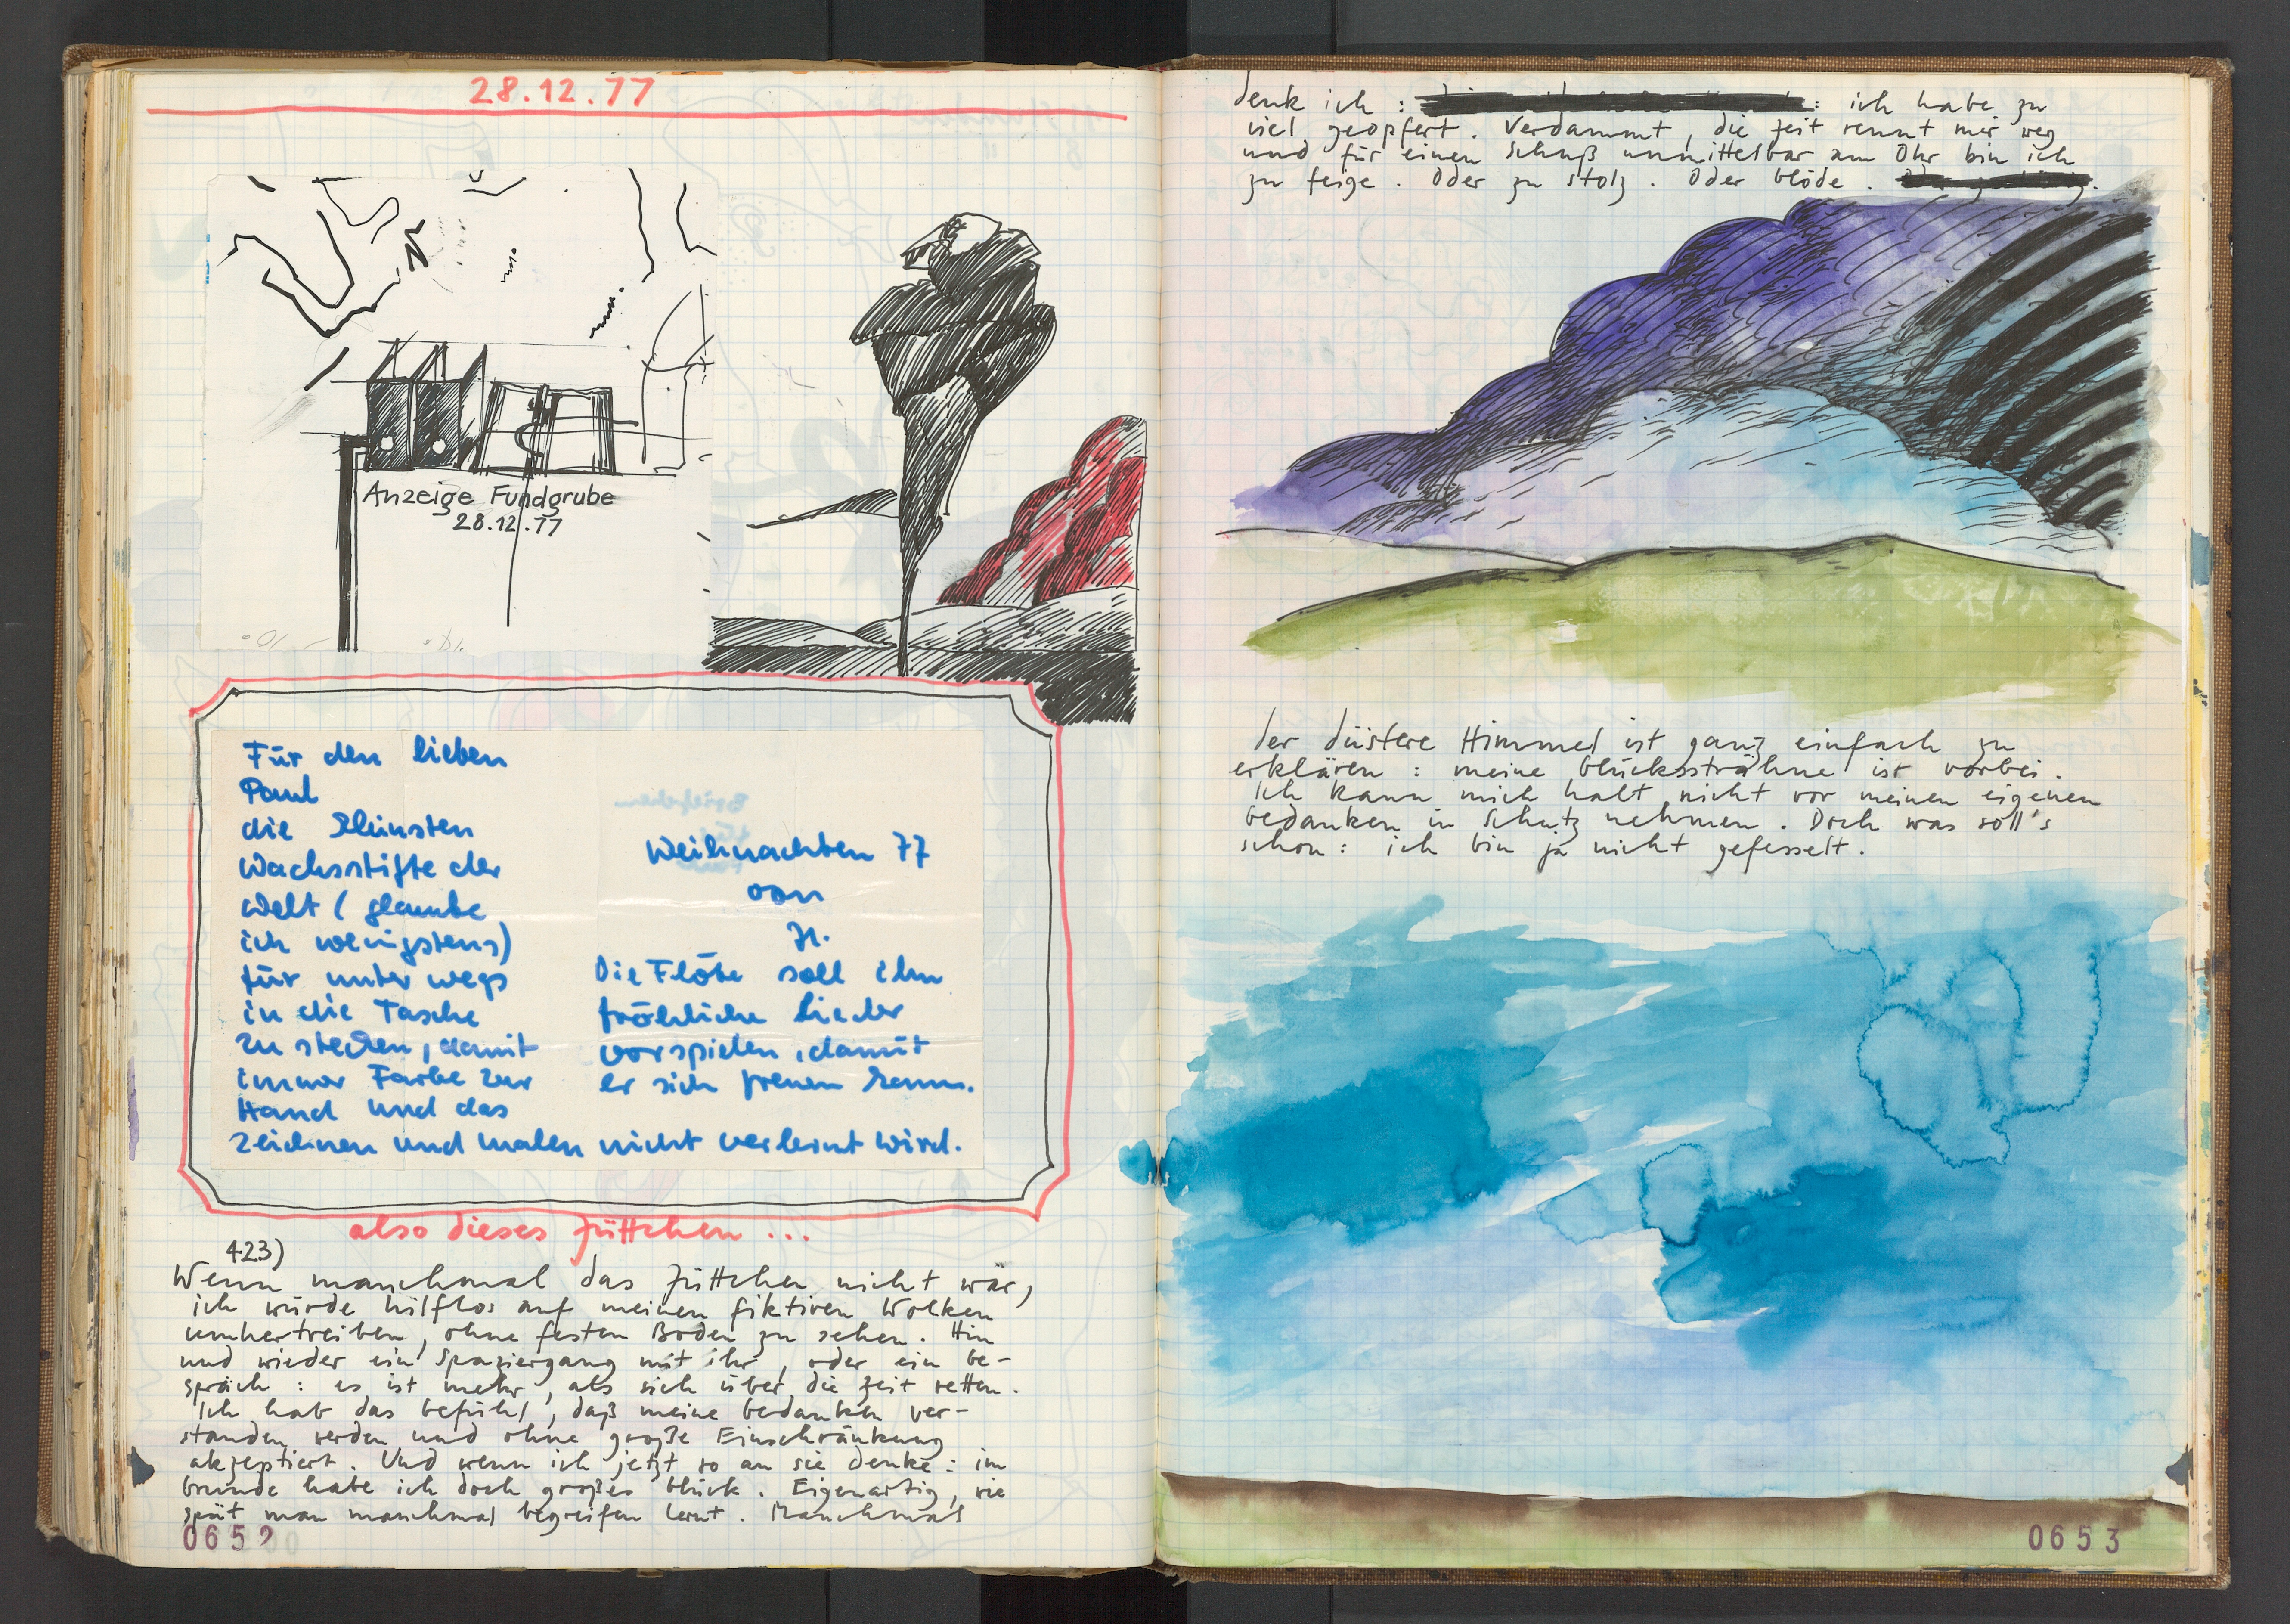 28.12.77
Anzeige Fundgrube
28.12.77
Für den lieben
Paul
die kleinsten
Wachsstifte der
Welt (glaube
ich wenigstens)
für unterwegs
in die Tasche
zu stecken, damit
immer Farbe zur
Hand und das
zeichnen und malen nicht verlernt wird.
Weihnachten 77
von
H.
Die Flöte soll ihm
fröhliche Lieder
vorspielen, damit
er sich freuen kann.
also dieses Jüttchen ...
423)
Wenn manchmal das Jüttchen nicht wär,
ich würde hilflos auf meinen fiktiven Wolken
umhertreiben, ohne festen Boden zu sehen. Hin
und wieder ein Spaziergang mit ihr, oder ein Ge-
spräch: es ist mehr, als sich über die Zeit retten.
Ich hab das Gefühl, daß meine Gedanken ver-
standen werden und ohne große Einschränkung
akzeptiert. Und wenn ich jetzt so an sie denke: im
Grunde habe ich doch großes Glück. Eigenartig, wie
spät man manchmal begreifen lernt. Manchmal
0652
denk ich: : ich habe zu
viel geopfert. Verdammt, die Zeit rennt mir weg
und für einen Schuß unmittelbar am Ohr bin ich
zu feige. Oder zu stolz. Oder blöde.
der düstere Himmel ist ganz einfach zu
erklären: meine Glückssträhne ist vorbei.
Ich kann mich halt nicht vor meinen eigenen
Gedanken in Schutz nehmen. Doch was soll's
schon: ich bin ja nicht gefesselt.
0653